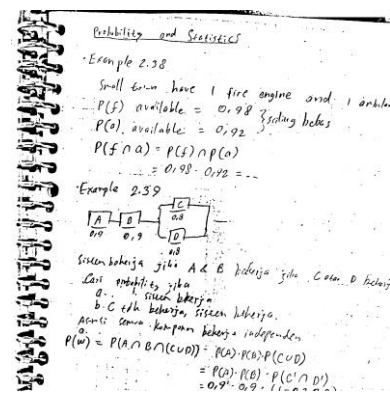 Probability and Statistics
- Example 2.38
Small town have 1 fire engine and 1 ambulan
P(f) available = 0,98 } saling bebas
P(a) available = 0,92
P(f ∩ a) = P(f) ∩ P(a)
= 0,98 . 0,92 = ...
- Example 2.39
A B C D
0,9 0,9 0,8 0,8
Sistem bekerja jika A & B bekerja jika C atau D bekerja
Cari probability jika
a. sistem bekerja
b. C tdk bekerja, sistem bekerja.
Asumsi semua komponen bekerja independen
a.
P(w) = P(A ∩ B ∩ (C ∪ D)) = P(A) . P(B) . P(C ∪ D)
= P(A) . P(B) . P(C' ∩ D')
= 0,9 . 0,9 . (1 -